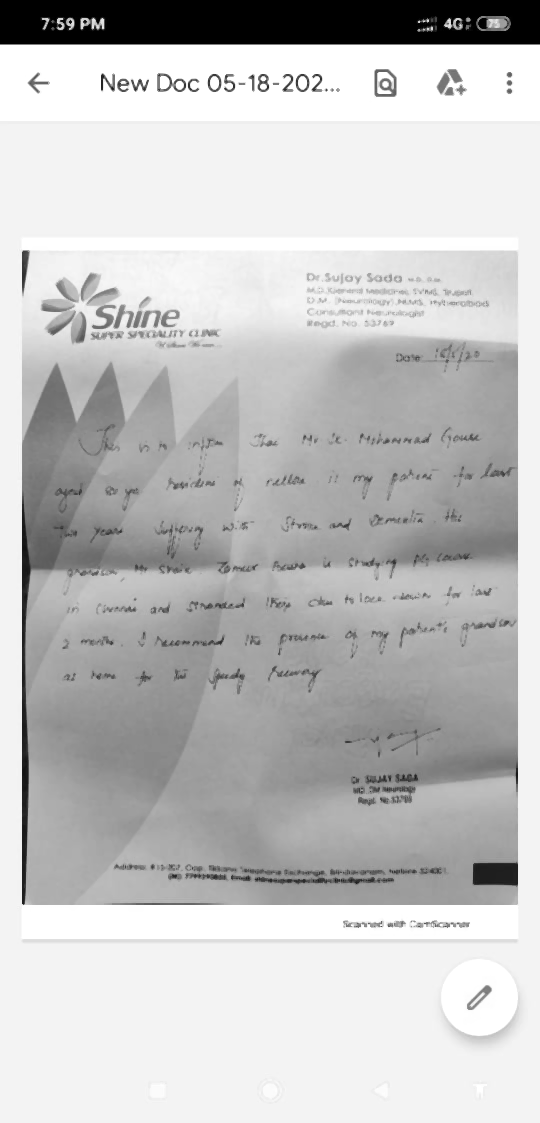 7:59 PM
4G 75
New Doc 05-18-202...
Shine
SUPER SPECIALITY CLINIC
Dr.Sujay Sada M.D. D.M.
M.D.(General Medicine), SVIMS, Tirupati.
D.M. (Neurology),NIMS, Hyderabad
Consultant Neurologist
Regd. No. 53769
Date: /5/20
This is to inform that Mr. Sk. Mohammad Gouse
aged yrs residine of nellore is my patient for last
years suffering with and Dementia. His
grandson, Mr Shaik. Zameer is studying PG course
in Chennai and stranded there due to lock down for last
2 months. I recommend the presence of my patient's grandson
at home for the speedy recovery
Dr SUJAY SADA
MD. DM Neurology
Regd. No.53769
Address: Opp. Telephone Exchange, Nellore
Scanned with CamScanner